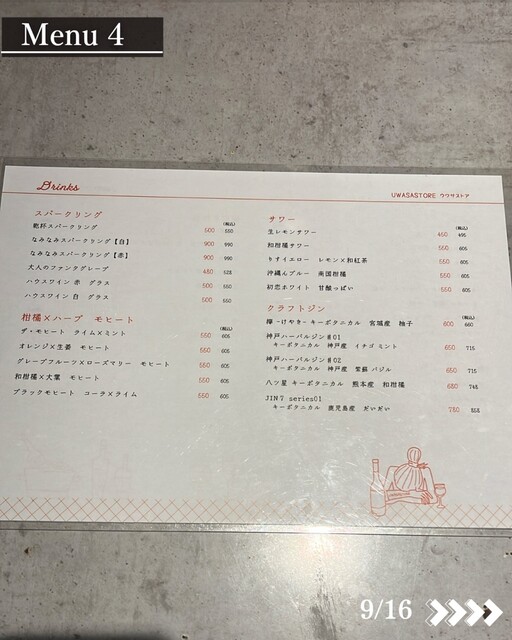 Menu 4
Drinks
UWASASTORE ウワサストア
スパークリング
(税込)
乾杯スパークリング 500 550
なみなみスパークリング【白】 900 990
なみなみスパークリング【赤】 900 990
大人のファンタグレープ 480 528
ハウスワイン 赤 グラス 500 550
ハウスワイン 白 グラス 500 550
柑橘×ハーブ モヒート
(税込)
ザ・モヒート ライム×ミント 550 605
オレンジ×生姜 モヒート 550 605
グレープフルーツ×ローズマリー モヒート 550 605
和柑橘×大葉 モヒート 550 605
ブラックモヒート コーラ×ライム 550 605
サワー
(税込)
生レモンサワー 450 495
和柑橘サワー 550 605
りすイエロー レモン×和紅茶 550 605
沖縄んブルー 南国柑橘 550 605
初恋ホワイト 甘酸っぱい 550 605
クラフトジン
(税込)
欅-けやき- キーボタニカル 宮城産 柚子 600 660
神戸ハーバルジン#01
キーボタニカル 神戸産 イチゴ ミント 650 715
神戸ハーバルジン#02
キーボタニカル 神戸産 紫蘇 バジル 650 715
八ッ星 キーボタニカル 熊本産 和柑橘 680 748
JIN7 series01
キーボタニカル 鹿児島産 だいだい 780 858
9/16